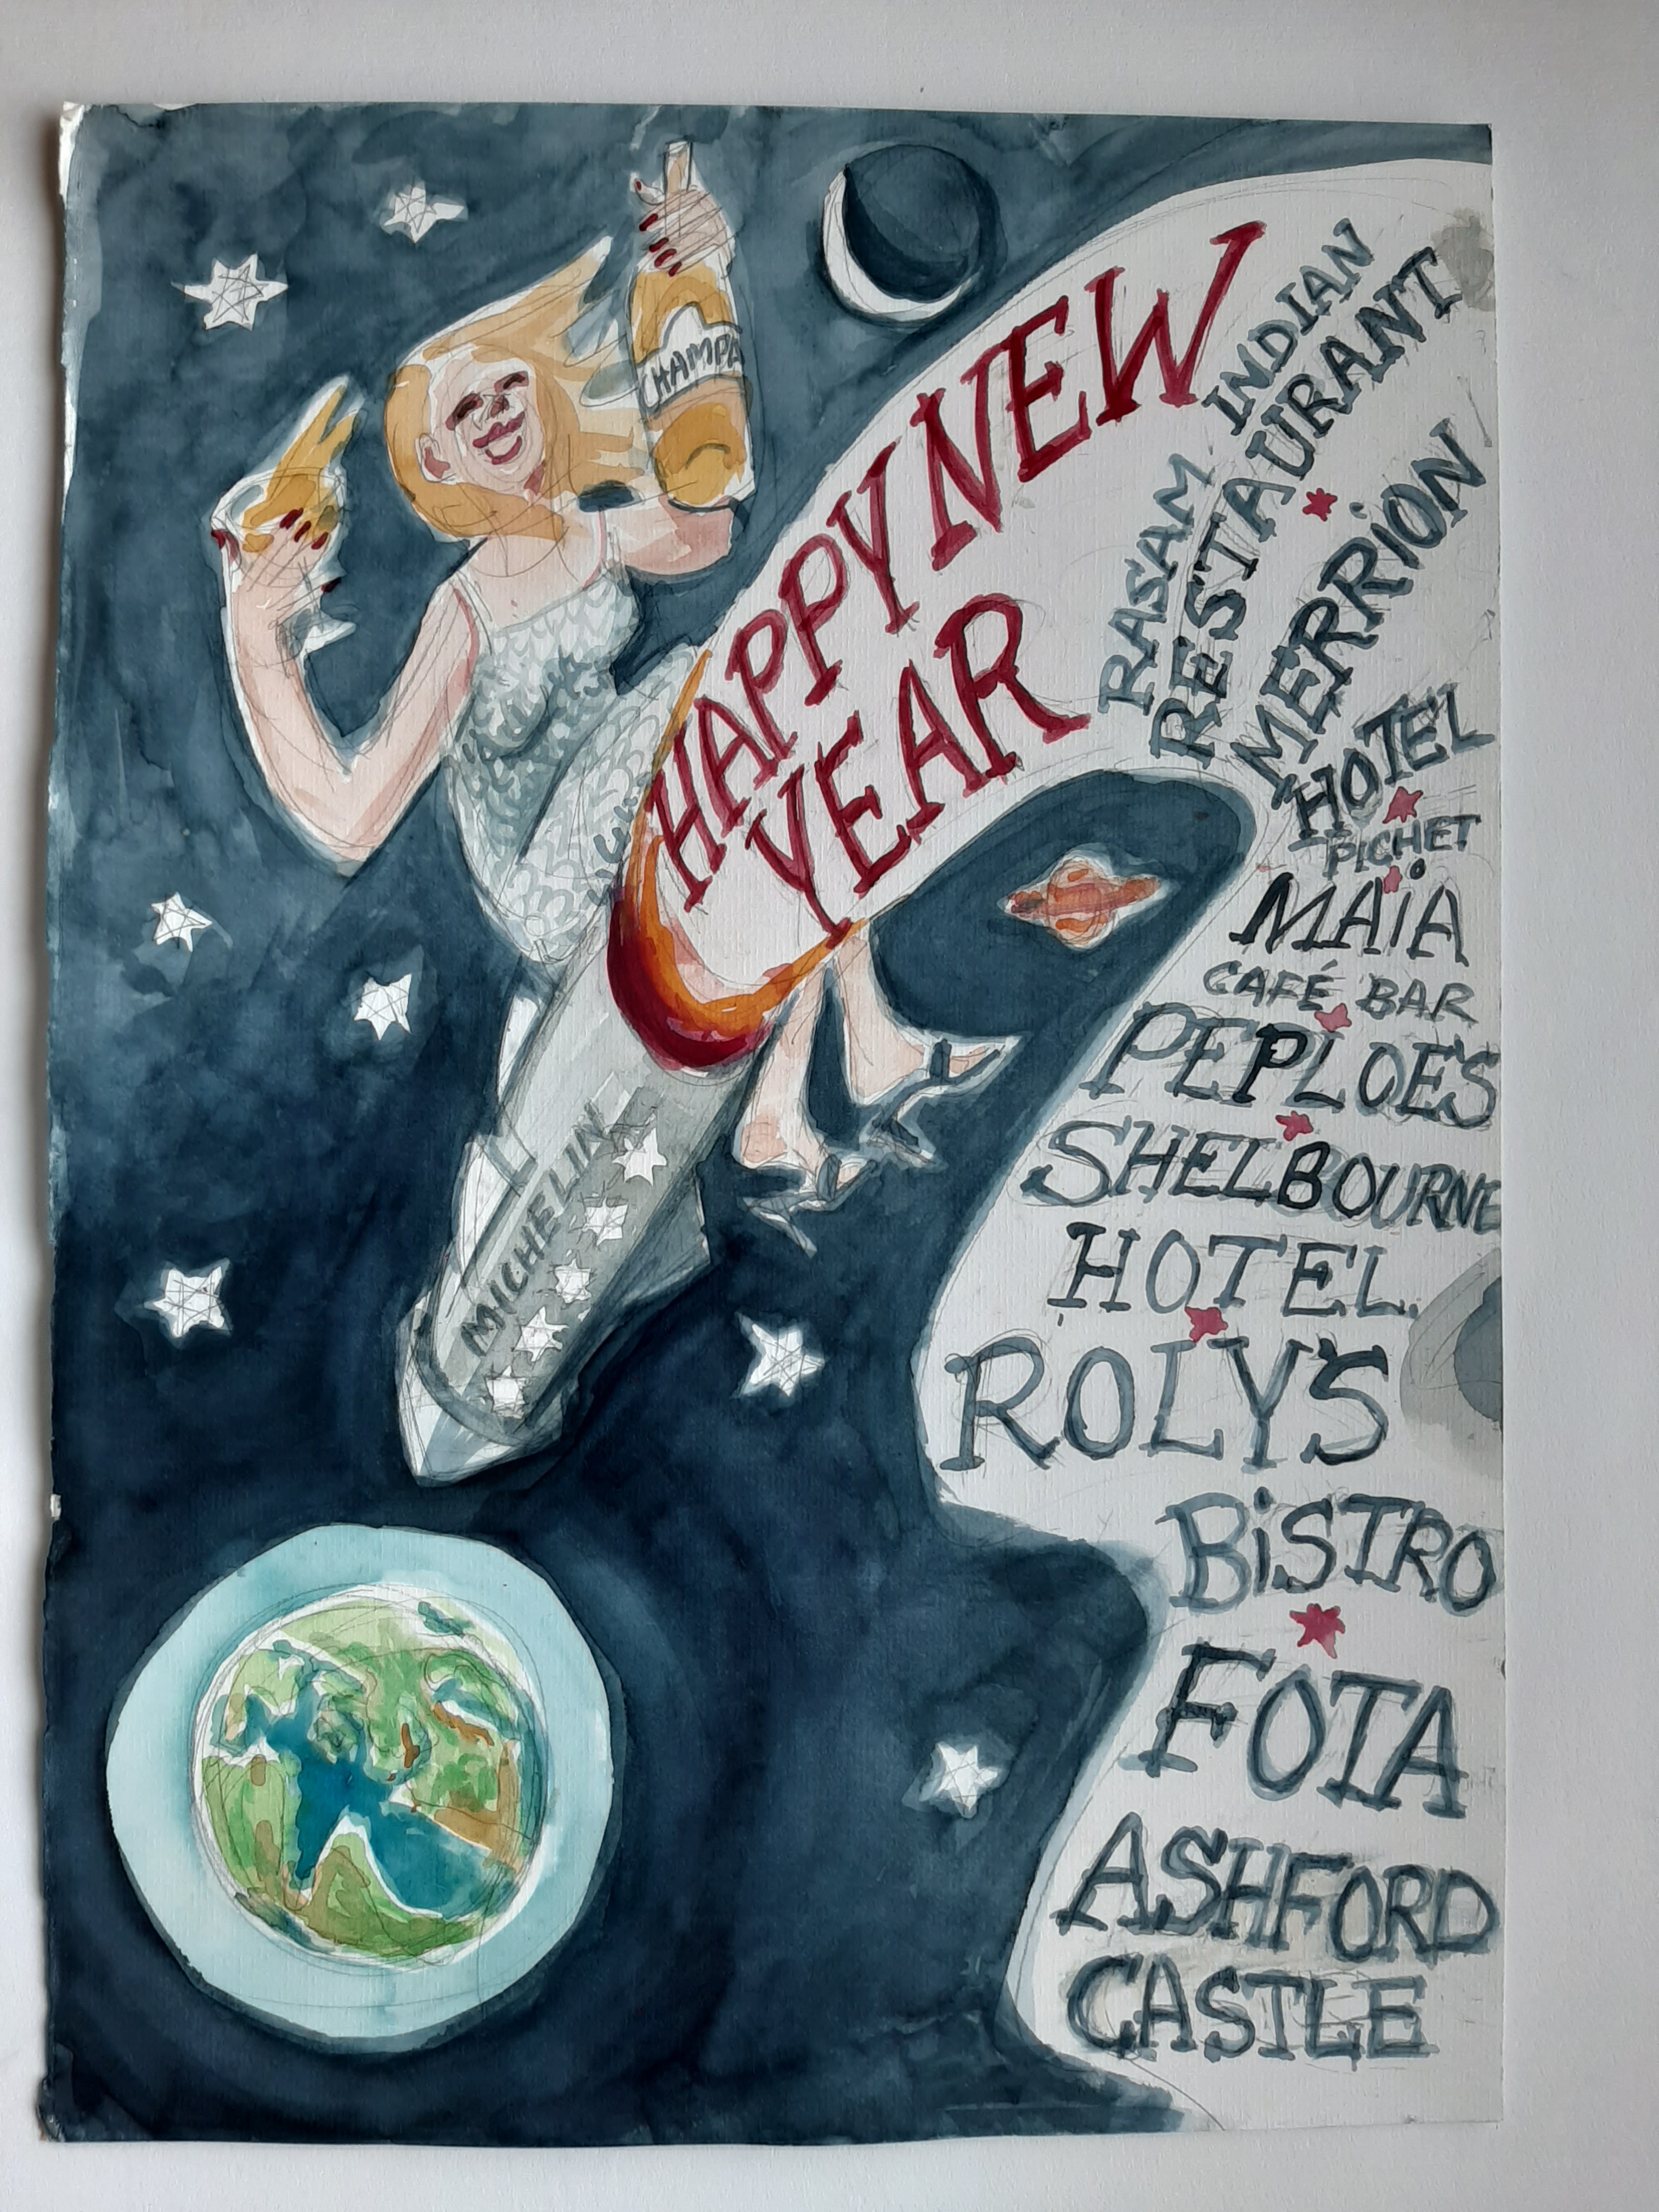 CHAMPA
HAPPY NEW
YEAR
RASAM
INDIAN
RESTAURANT
MERRION
HOTEL
PICHET
MAiA
CAFÉ BAR
PEPLOE'S
SHELBOURNE
HOTEL
ROLY'S
BiSTRO
FOTA
ASHFORD
CASTLE
MICHELIN